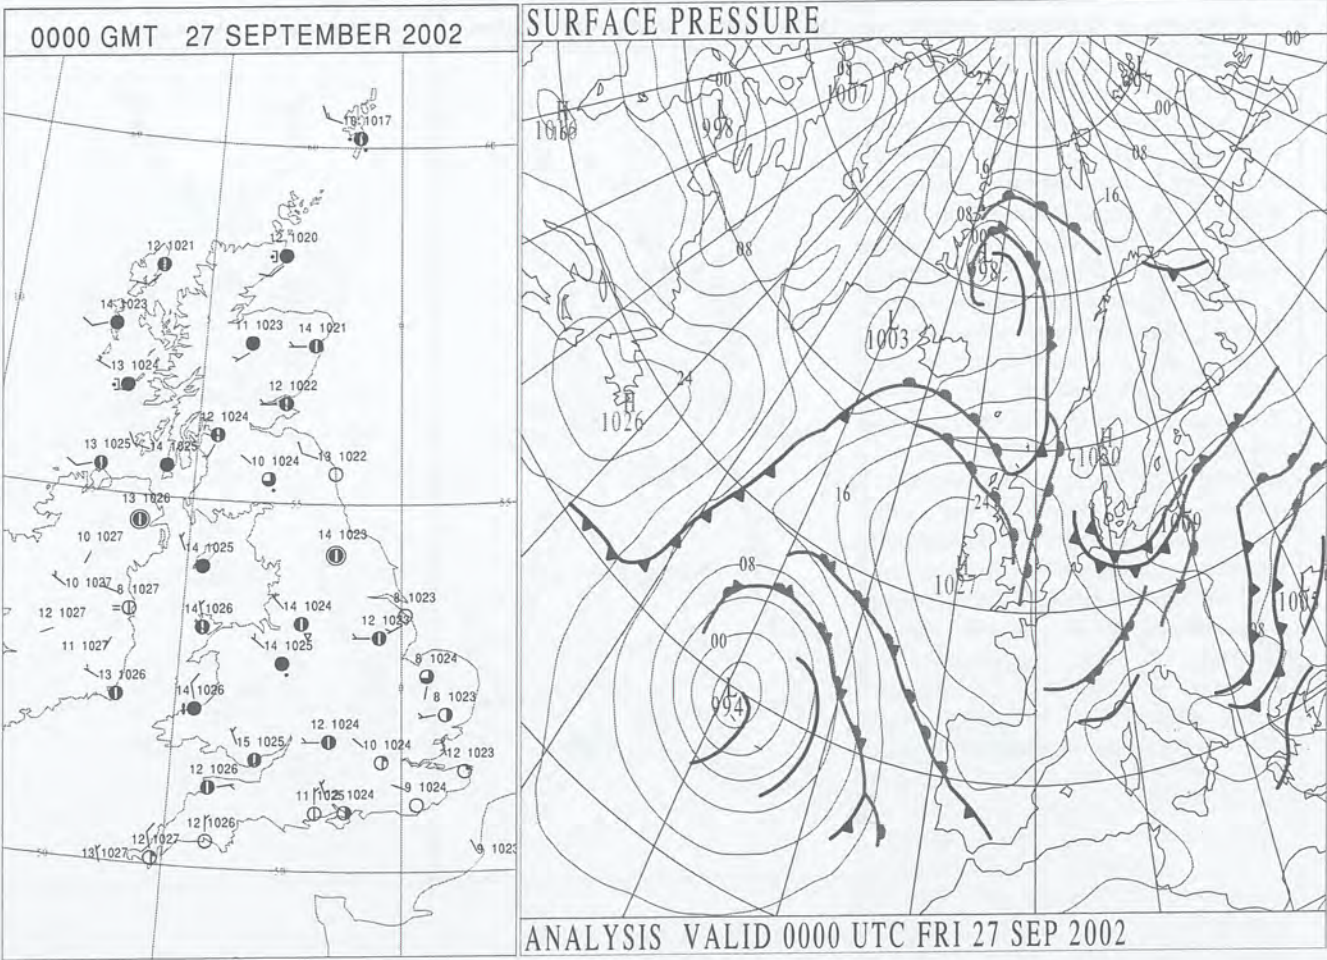 0000 GMT 27 SEPTEMBER 2002
10 1017
12 1020
12 1021
14 1023
11 1023
14 1021
13 1024
12 1022
12 1024
13 1025
14 1025
10 1024
13 1022
13 1026
10 1027
14 1025
14 1023
10 1027
8 1027
12 1027
14 1026
14 1024
8 1023
12 1023
11 1027
14 1025
8 1024
13 1026
14 1026
8 1023
12 1024
15 1025
10 1024
12 1023
12 1026
9 1024
11 1025
1024
12 1026
12 1027
13 1027
9 1023
SURFACE PRESSURE
00
00
08
L
1007
24
00
H
L
998
08
16
16
08
00
998
08
L
1003
24
1026
H
1030
16
24
1009
08
1027
1005
08
00
994
ANALYSIS VALID 0000 UTC FRI 27 SEP 2002